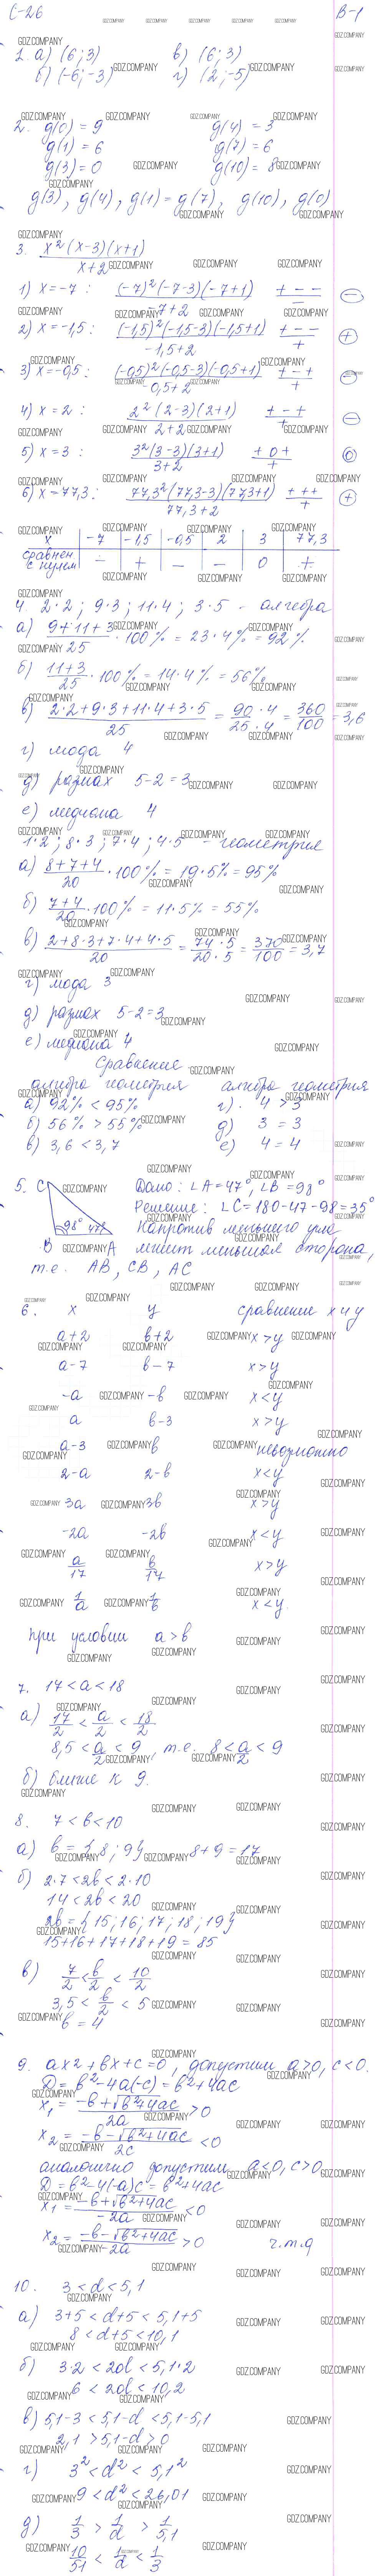 С-26 В-1
1. а) (6; 3) в) (6; 3)
б) (-6; -3) г) (2; -5)
2. g(0) = 9 g(4) = 3
g(1) = 6 g(7) = 6
g(3) = 0 g(10) = 8
g(3), g(4), g(1) = g(7), g(10), g(0)
3. x²(x-3)(x+1) / x+2
1) x = -7 : (-7)²(-7-3)(-7+1) / -7+2 + - - / - -
2) x = -1,5 : (-1,5)²(-1,5-3)(-1,5+1) / -1,5+2 + - - / + +
3) x = -0,5 : (-0,5)²(-0,5-3)(-0,5+1) / -0,5+2 + - + / + -
4) x = 2 : 2²(2-3)(2+1) / 2+2 + - + / + -
5) x = 3 : 3²(3-3)(3+1) / 3+2 + 0 + / + 0
6) x = 77,3 : 77,3²(77,3-3)(77,3+1) / 77,3+2 + + + / + +
x -7 -1,5 -0,5 2 3 77,3
сравнен с нулем - + - - 0 +
4. 2·2; 9·3; 11·4; 3·5 - алгебра
а) 9+11+3 / 25 · 100% = 23·4% = 92%
б) 11+3 / 25 · 100% = 14·4% = 56%
в) 2·2+9·3+11·4+3·5 / 25 = 90·4 / 25·4 = 360 / 100 = 3,6
г) мода 4
д) размах 5-2=3
е) медиана 4
1·2; 8·3; 7·4; 4·5 - геометрия
а) 8+7+4 / 20 · 100% = 19·5% = 95%
б) 7+4 / 20 · 100% = 11·5% = 55%
в) 2+8·3+7·4+4·5 / 20 = 74·5 / 20·5 = 370 / 100 = 3,7
г) мода 3
д) размах 5-2=3
е) медиана 4
Сравнение
алгебра геометрия алгебра геометрия
а) 92% < 95% г) 4 > 3
б) 56% > 55% д) 3 = 3
в) 3,6 < 3,7 е) 4 = 4
5. C Дано: ∠A = 47°, ∠B = 98°
Решение: ∠C = 180-47-98 = 35°
98° 47° Напротив меньшего угла
B A лежит меньшая сторона,
т.е. AB, CB, AC
6. x y сравнение x и y
a+2 b+2 x > y
a-7 b-7 x > y
-a -b x < y
a b-3 x > y
a-3 b невозможно
2-a 2-b x < y
3a 3b x > y
-2a -2b x < y
a/17 b/17 x > y
1/a 1/b x < y
при условии a > b
7. 17 < a < 18
а) 17/2 < a/2 < 18/2
8,5 < a/2 < 9, т.е. 8 < a/2 < 9
б) ближе к 9.
8. 7 < b < 10
а) b = {8; 9} 8+9 = 17
б) 2·7 < 2b < 2·10
14 < 2b < 20
2b = {15; 16; 17; 18; 19}
15+16+17+18+19 = 85
в) 7/2 < b/2 < 10/2
3,5 < b/2 < 5
b = 4
9. ax2 + bx + c = 0, допустим a>0, c<0.
D = b²-4a(-c) = b²+4ac
x₁ = -b+√b²+4ac / 2a > 0
x₂ = -b-√b²+4ac / 2c < 0
аналогично допустим a<0, c>0
D = b²-4(-a)c = b²+4ac
x₁ = -b+√b²+4ac / -2a < 0
x₂ = -b-√b²+4ac / -2a > 0 ч.т.д
10. 3 < d < 5,1
а) 3+5 < d+5 < 5,1+5
8 < d+5 < 10,1
б) 3·2 < 2d < 5,1·2
6 < 2d < 10,2
в) 5,1-3 < 5,1-d < 5,1-5,1
2,1 > 5,1-d > 0
г) 3² < d² < 5,1²
9 < d² < 26,01
д) 1/3 > 1/d > 1/5,1
10/51 < 1/d < 1/3